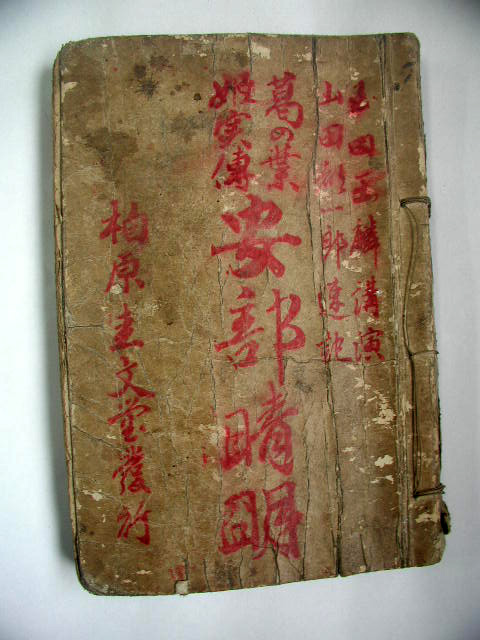 玉田玉麟講演
山田都一郎速記
葛の葉
姫実傳
安部晴明
柏原圭文堂發行